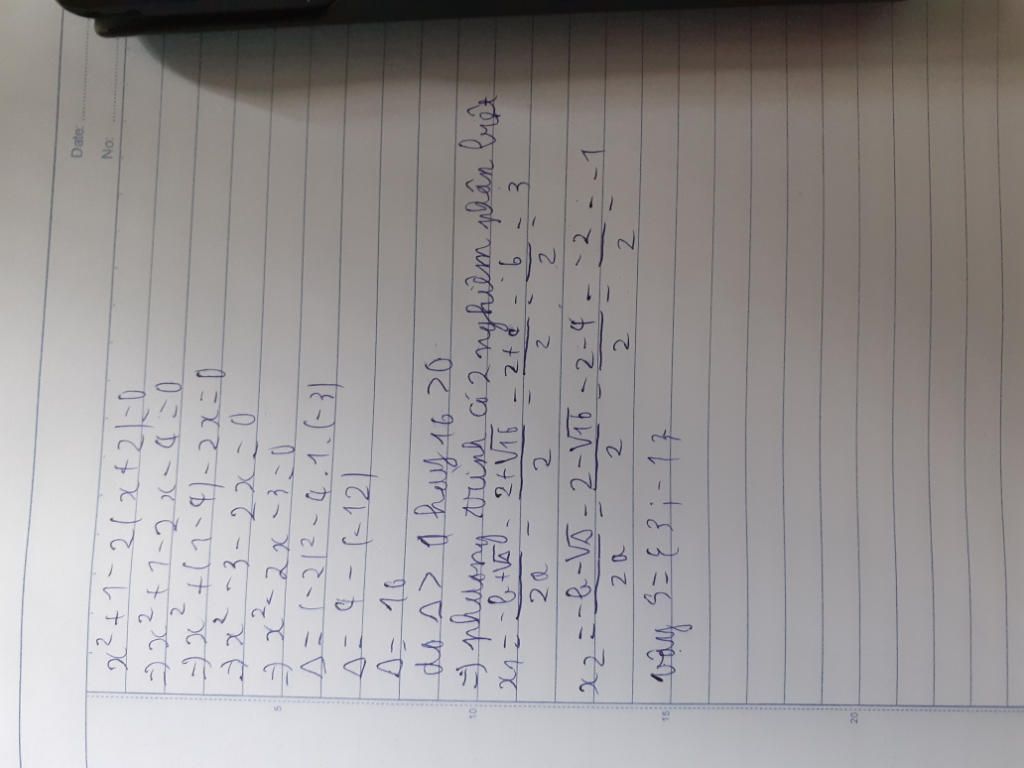 Date:
No:
x² + 1 - 2(x + 2) = 0
=> x² + 1 - 2x - 4 = 0
=> x² + (1 - 4) - 2x = 0
=> x² - 3 - 2x = 0
=> x² - 2x - 3 = 0
Δ = (-2)² - 4 . 1 . (-3)
Δ = 4 - (-12)
Δ = 16
do Δ > 0 hay 16 > 0
=> phương trình có 2 nghiệm phân biệt
x₁ = (-b + √Δ)/2a = (2 + √16)/2 = (2 + 4)/2 = 6/2 = 3
x₂ = (-b - √Δ)/2a = (2 - √16)/2 = (2 - 4)/2 = -2/2 = -1
Vậy S = {3; -1}
5
10
15
20